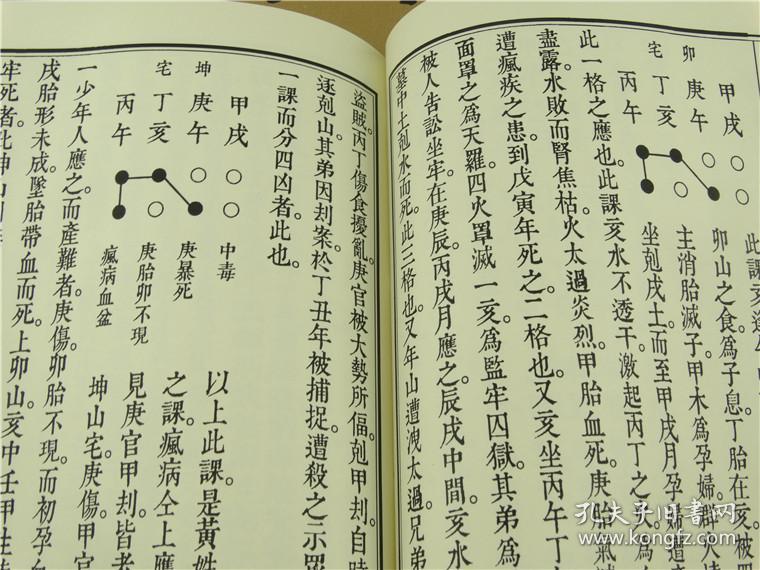 此課亥逢
卯
甲戌
庚午
丁亥
丙午
宅
卯山之食爲子息丁胎在亥被
主消胎滅子甲木爲孕婦群火
坐剋戌土而至甲戌月孕婦遭
此一格之應也此課亥水不透干激起丙丁之火
盡露水敗而腎焦枯火太過炎烈甲胎血死庚胎氣
遭瘋疾之患到戊寅年死之二格也又亥坐丙午丁
面罩之爲天羅四火罩滅一亥爲監牢囚獄其弟爲
被人告訟坐牢在庚辰丙戌月應之辰戌中間亥水
墓中土剋水而死此三格也又年山遭洩太過兄弟
盜賊丙丁傷食擾亂庚官被大勢所偪剋甲刦自時
逐剋山其弟因刦案於丁丑年被捕捉遭殺之示眾
一課而分四凶者此也
坤
甲戌
庚午
丁亥
丙午
宅
中毒
庚暴死
庚胎卯不現
瘋病血盆
以上此課是黃姓
之課瘋病仝上應
見庚官甲刦皆者
坤山宅庚傷甲官
一少年人應之而產難者庚傷卯胎不現而初孕
戌胎形未成墜胎帶血而死上卯山亥中壬甲
牢死者此坤山
孔夫子旧书网
www.kongfz.com